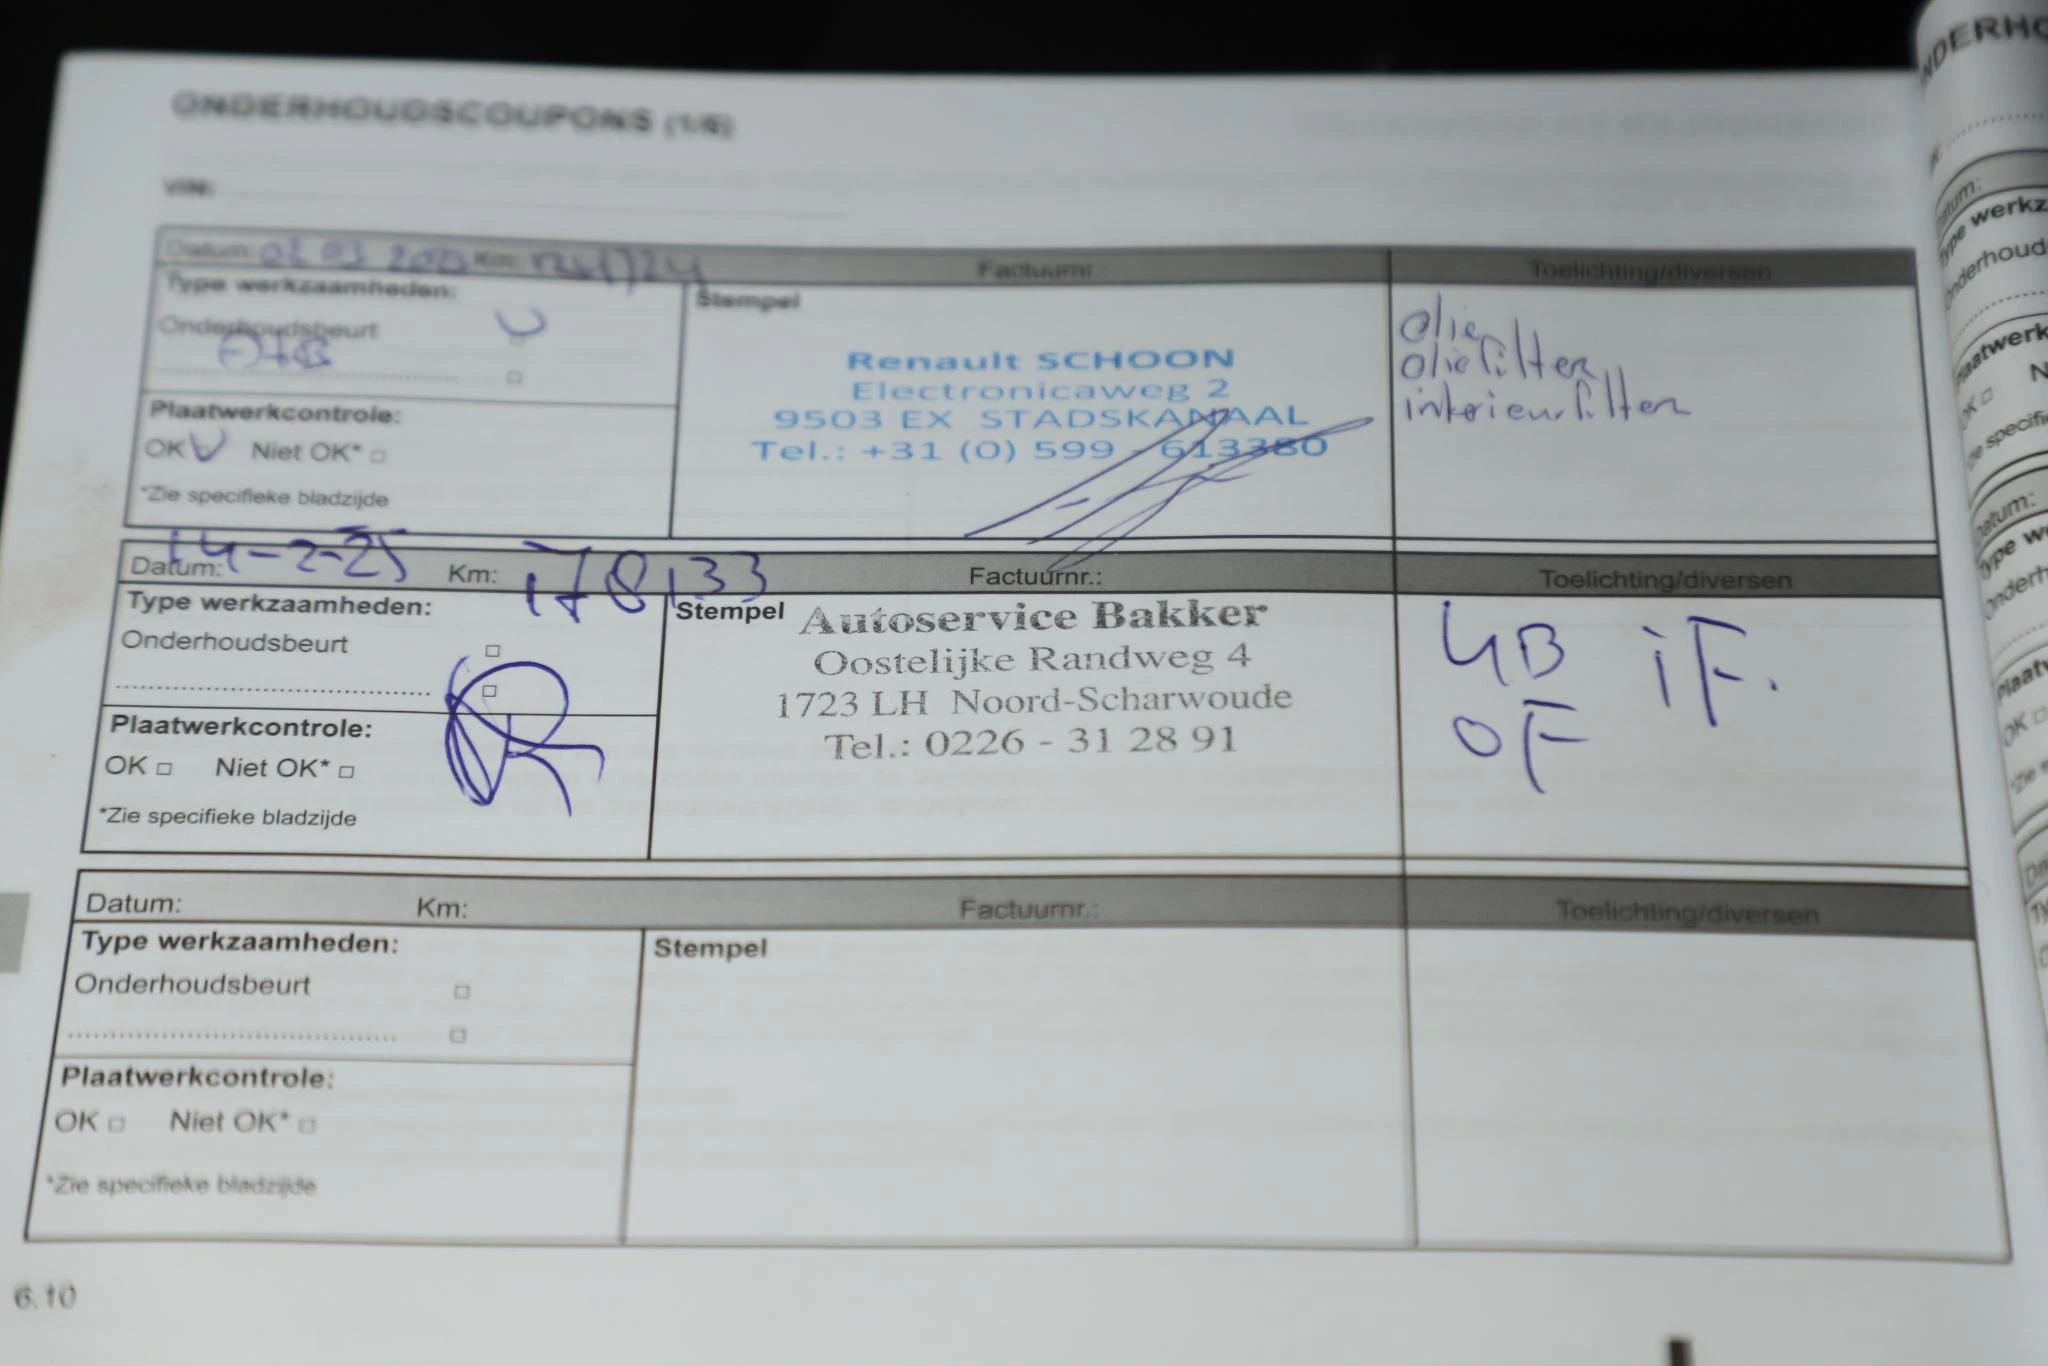 ONDERHOUDSCOUPONS (1/6)
VIN:
Datum: 02 03 Km: Factuurnr.: Toelichting/diversen
Type werkzaamheden:
Onderhoudsbeurt
Stempel
Renault SCHOON
Electronicaweg 2
9503 EX STADSKANAAL
Tel.: +31 (0) 599 - 613380
olie
oliefilter
interieurfilter
Plaatwerkcontrole:
OK V Niet OK* □
*Zie specifieke bladzijde
Datum: 14-2-25 Km: 178133 Factuurnr.: Toelichting/diversen
Type werkzaamheden:
Onderhoudsbeurt □
□
Stempel
Autoservice Bakker
Oostelijke Randweg 4
1723 LH Noord-Scharwoude
Tel.: 0226 - 31 28 91
iF.
OF
Plaatwerkcontrole:
OK □ Niet OK* □
*Zie specifieke bladzijde
Datum: Km: Factuurnr.: Toelichting/diversen
Type werkzaamheden:
Onderhoudsbeurt □
□
Stempel
Plaatwerkcontrole:
OK □ Niet OK* □
*Zie specifieke bladzijde
6.10